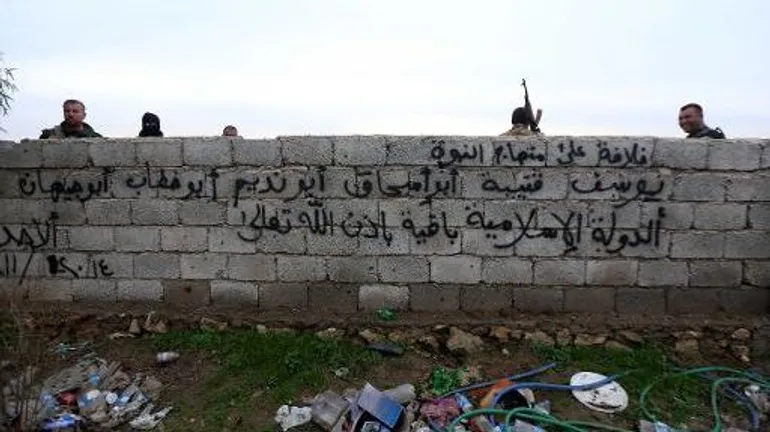 خلافة على منهاج النبوة
يوسف قتيبة أبو اسحاق أبو نديم أبو خطاب أبو جيهان
الدولة الإسلامية باقية باذن الله تعالى
الأحد
٢٠١٤